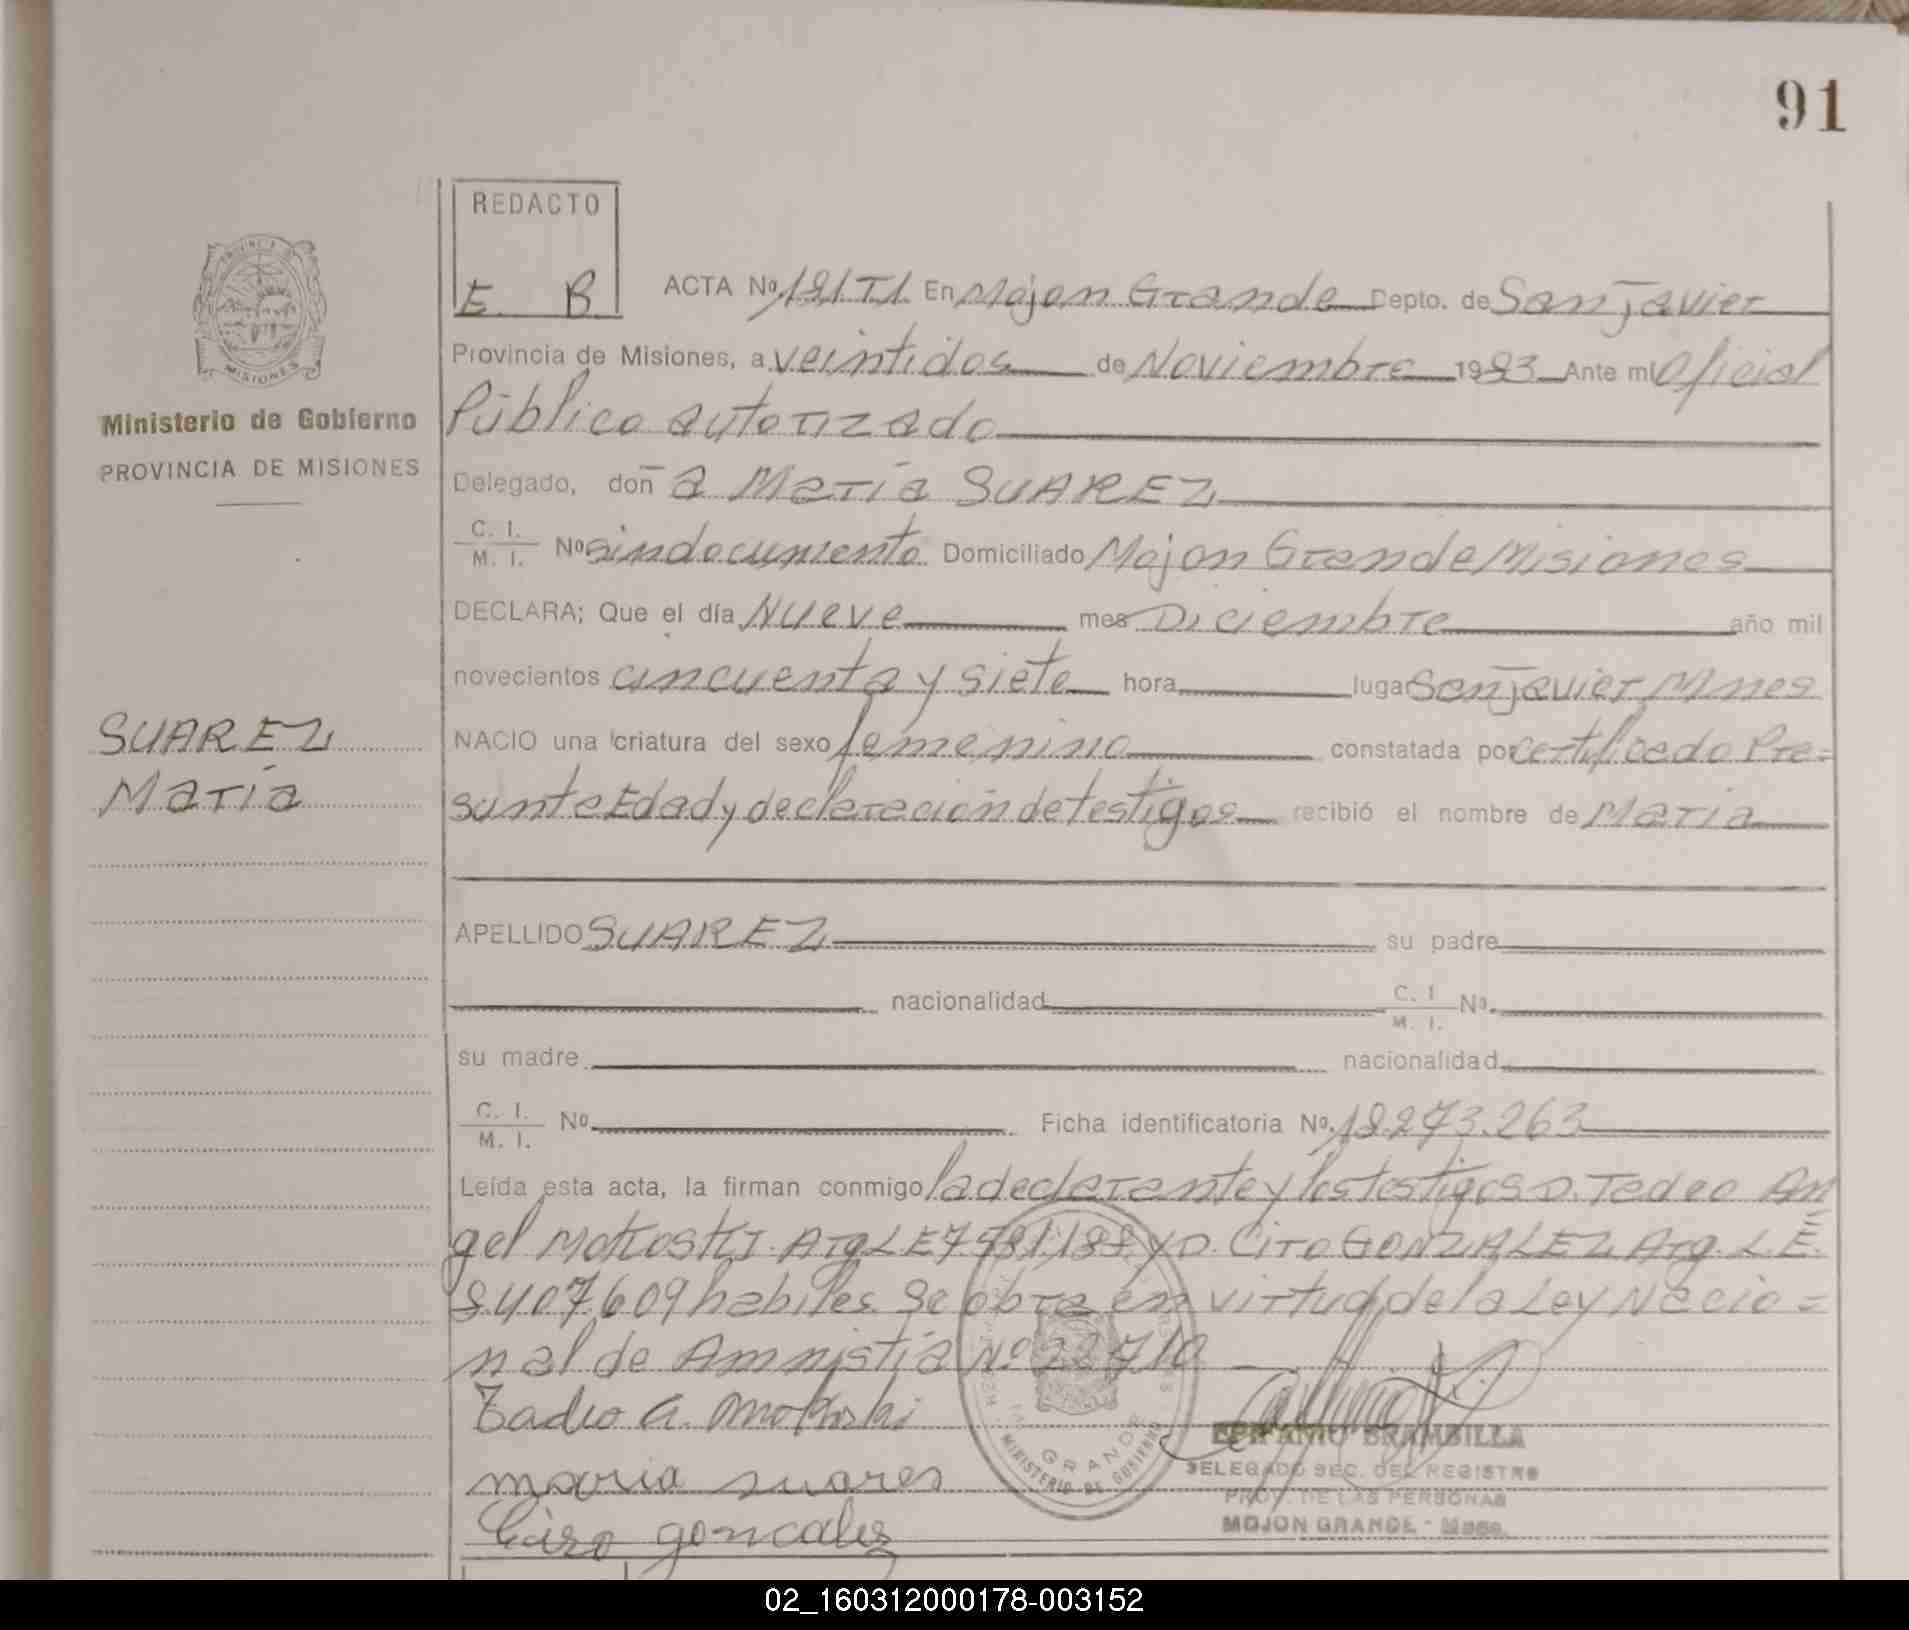 91
REDACTO
E. B
ACTA Nº 181 T1. En Mojon Grande Depto. de San Javier
Provincia de Misiones, a veintidos de Noviembre 1983 Ante mi Oficial
Público autorizado
Ministerio de Gobierno
PROVINCIA DE MISIONES
Delegado, doña María SUAREZ
C. I. M. I. Nº sin documento Domiciliado Mojon Grande Misiones
DECLARA; Que el día Nueve mes Diciembre año mil
novecientos cincuenta y siete hora lugar San Javier Mnes
SUAREZ
María
NACIO una criatura del sexo femenino constatada por certificado Pre=
sunta Edad y declaración de testigos recibió el nombre de María
APELLIDO SUAREZ su padre
nacionalidad C. I. M. I. Nº
su madre nacionalidad
C. I. M. I. Nº Ficha identificatoria Nº 18.273.263
Leída esta acta, la firman conmigo la declarante y los testigos D. Tadeo An
gel Mokoski. Arg L E 7581188 y D. Ciro GONZALEZ Arg. L. E.
8407609 habiles. Se obra en virtud de la Ley Nacio=
nal de Amnistía Nº 22710
Tadeo A. Mokoski
maria suares
Ciro goncalez
GRANDE
MINISTERIO DE GOBIERNO
BRAMBILLA
DELEGADO SEC. DEL REGISTRO
PROV. DE LAS PERSONAS
MOJON GRANDE - Mnes.
MISIONES
02_160312000178-003152